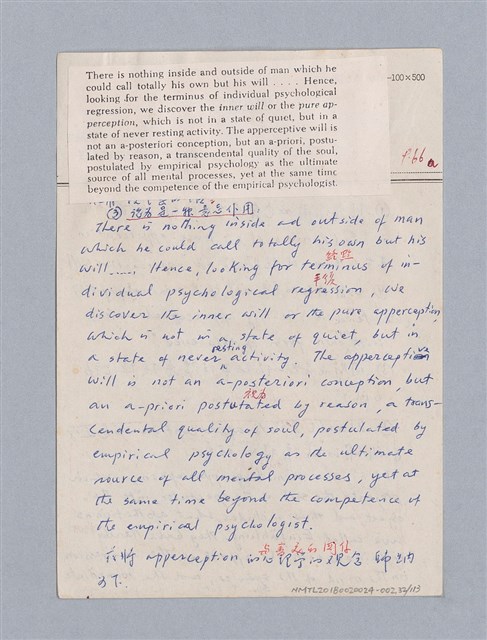 There is nothing inside and outside of man which he
could call totally his own but his will . . . . Hence,
looking for the terminus of individual psychological
regression, we discover the inner will or the pure ap-
perception, which is not in a state of quiet, but in a
state of never resting activity. The apperceptive will is
not an a-posteriori conception, but an a-priori, postu-
lated by reason, a transcendental quality of the soul,
postulated by empirical psychology as the ultimate
source of all mental processes, yet at the same time
beyond the competence of the empirical psychologist.
-100×500
f.66a
(3) 視為是一種意志作用
There is nothing inside ad outside of man
which he could call totally his own but his
終點
will ..... Hence, looking for terminus of in-
dividual psychological regression, we
discover the inner will or the pure apperception,
which is not in a state of quiet, but in
resting
a state of never activity. The apperceptive
will is not an a-posteriori conception, but
視為
an a-priori postutated by reason, a trans-
cendental quality of soul, postulated by
empirical psychology as the ultimate
source of all mental processes, yet at
the same time beyond the competence of
the empirical psychologist.
與意志的關係
我將 apperception 的心理學的觀念 歸納
如下.
NMTL20180020024-00232/113